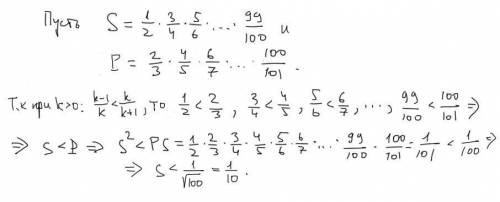 Пусть S = 1/2 · 3/4 · 5/6 · ... · 99/100 и
P = 2/3 · 4/5 · 6/7 · ... · 100/101 .
Т.к при k>0: (k-1)/k < k/(k+1), то 1/2 < 2/3 , 3/4 < 4/5 , 5/6 < 6/7 , ..., 99/100 < 100/101 ⇒
⇒ S < P ⇒ S² < PS = 1/2 · 2/3 · 3/4 · 4/5 · 5/6 · 6/7 · ... · 99/100 · 100/101 = 1/101 < 1/100 ⇒
⇒ S < 1/√100 = 1/10 .